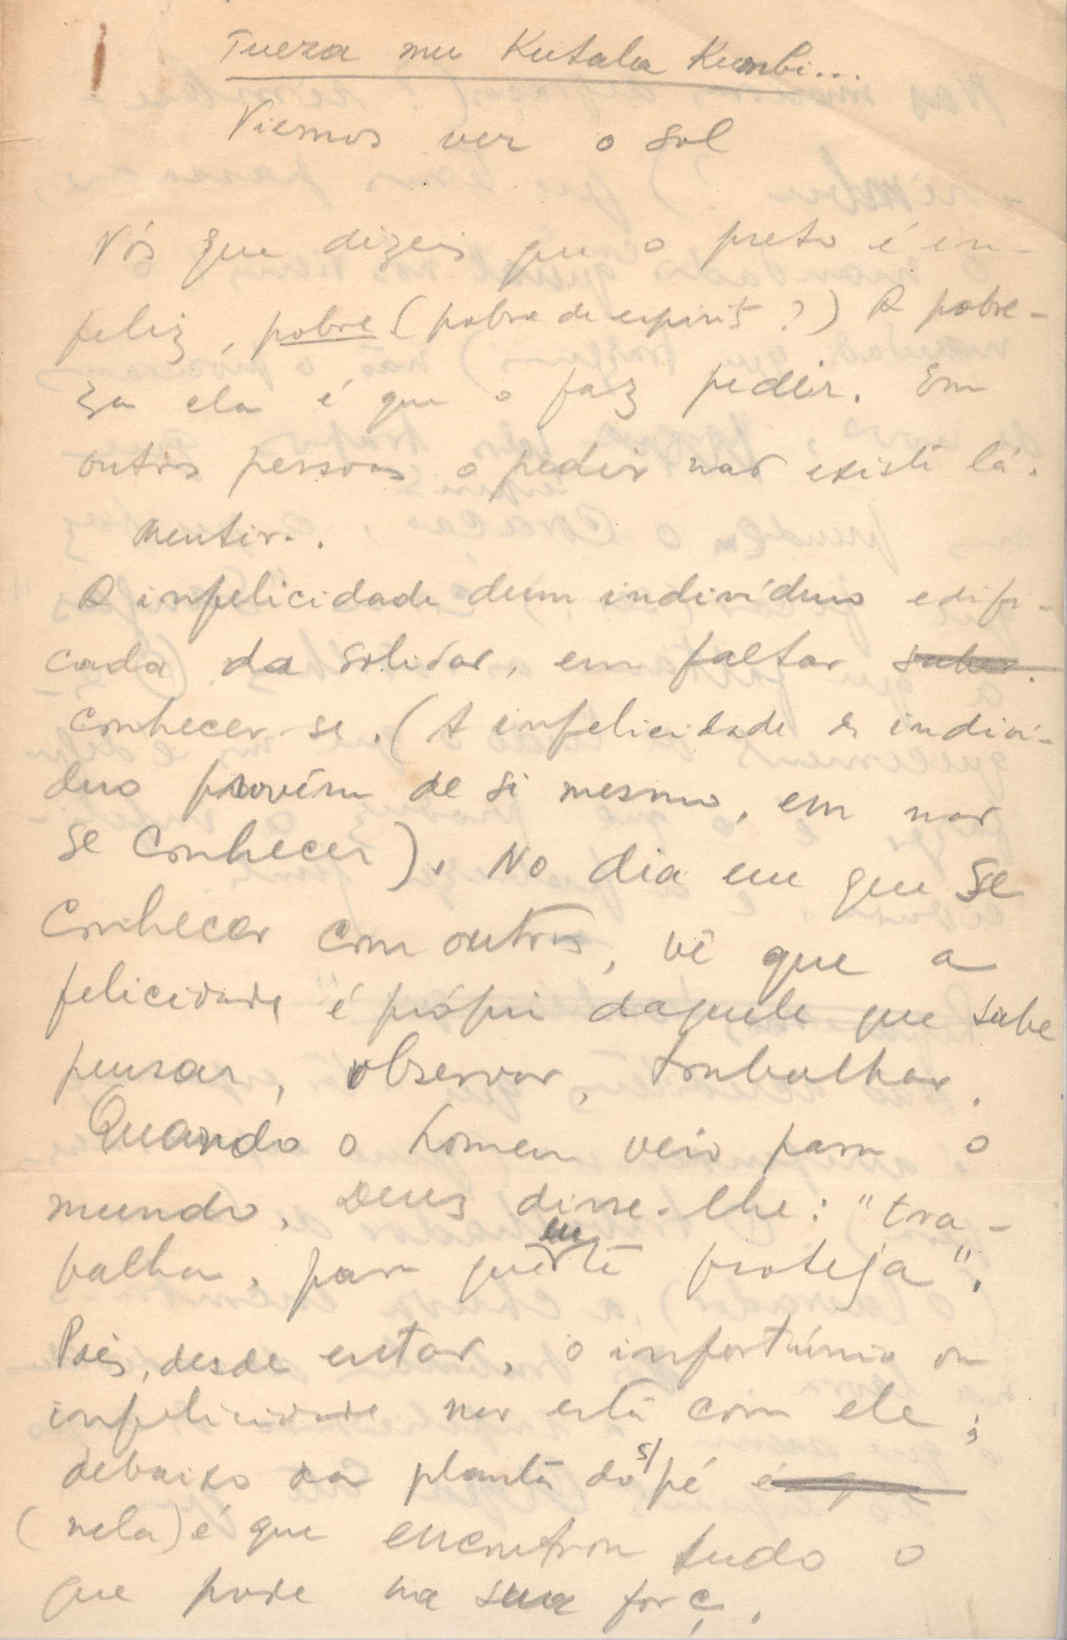 Tueza mu Kutala Kumbi...
Viemos ver o sol
Vós que dizeis que o preto é in-
feliz, pobre (pobre de espirito?) A pobre-
za ela é que o faz pedir. Em
outras pessoas o pedir não existe lá.
Mentira.
A infelicidade dum indivíduo edifi-
cada da solidão, em faltar saber.
conhecer-se. (A infelicidade do indiví-
duo provém de si mesmo, em não
se conhecer). No dia em que se
conhecer com outros, vê que a
felicidade é própria daquele que sabe
pensar, observar, trabalhar.
Quando o homem veio para o
mundo, Deus disse-lhe: "tra-
balha, para que eu te proteja".
Pois, desde então, o infortúnio ou
infelicidade não está com ele;
debaixo da planta do s/ pé é que
(nela) é que encontrou tudo o
que pode na sua força.